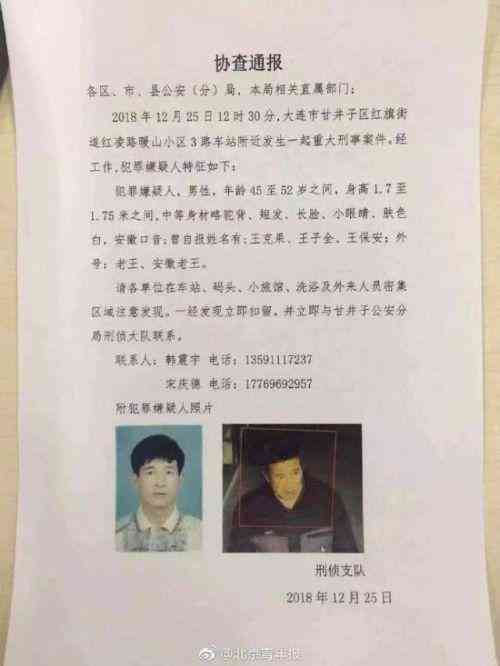 协查通报
各区、市、县公安（分）局，本局相关直属部门：
2018 年 12 月 25 日 12 时 30 分，大连市甘井子区红旗街
道红凌路暖山小区 3 路车站附近发生一起重大刑事案件。经
工作，犯罪嫌疑人特征如下：
犯罪嫌疑人，男性，年龄 45 至 52 岁之间，身高 1.7 至
1.75 米之间，中等身材略驼背、短发、长脸、小眼睛、肤色
白，安徽口音；曾自报姓名有：王克果、王子金、王保安；外
号：老王、安徽老王。
请各单位在车站、码头、小旅馆、洗浴及外来人员密集
区域注意发现。一经发现立即扣留，并立即与甘井子公安分
局刑侦大队联系。
联系人：韩震宇 电话：13591117237
宋庆德 电话：17769692957
附犯罪嫌疑人照片
刑侦支队
2018 年 12 月 25 日
@北京青年报